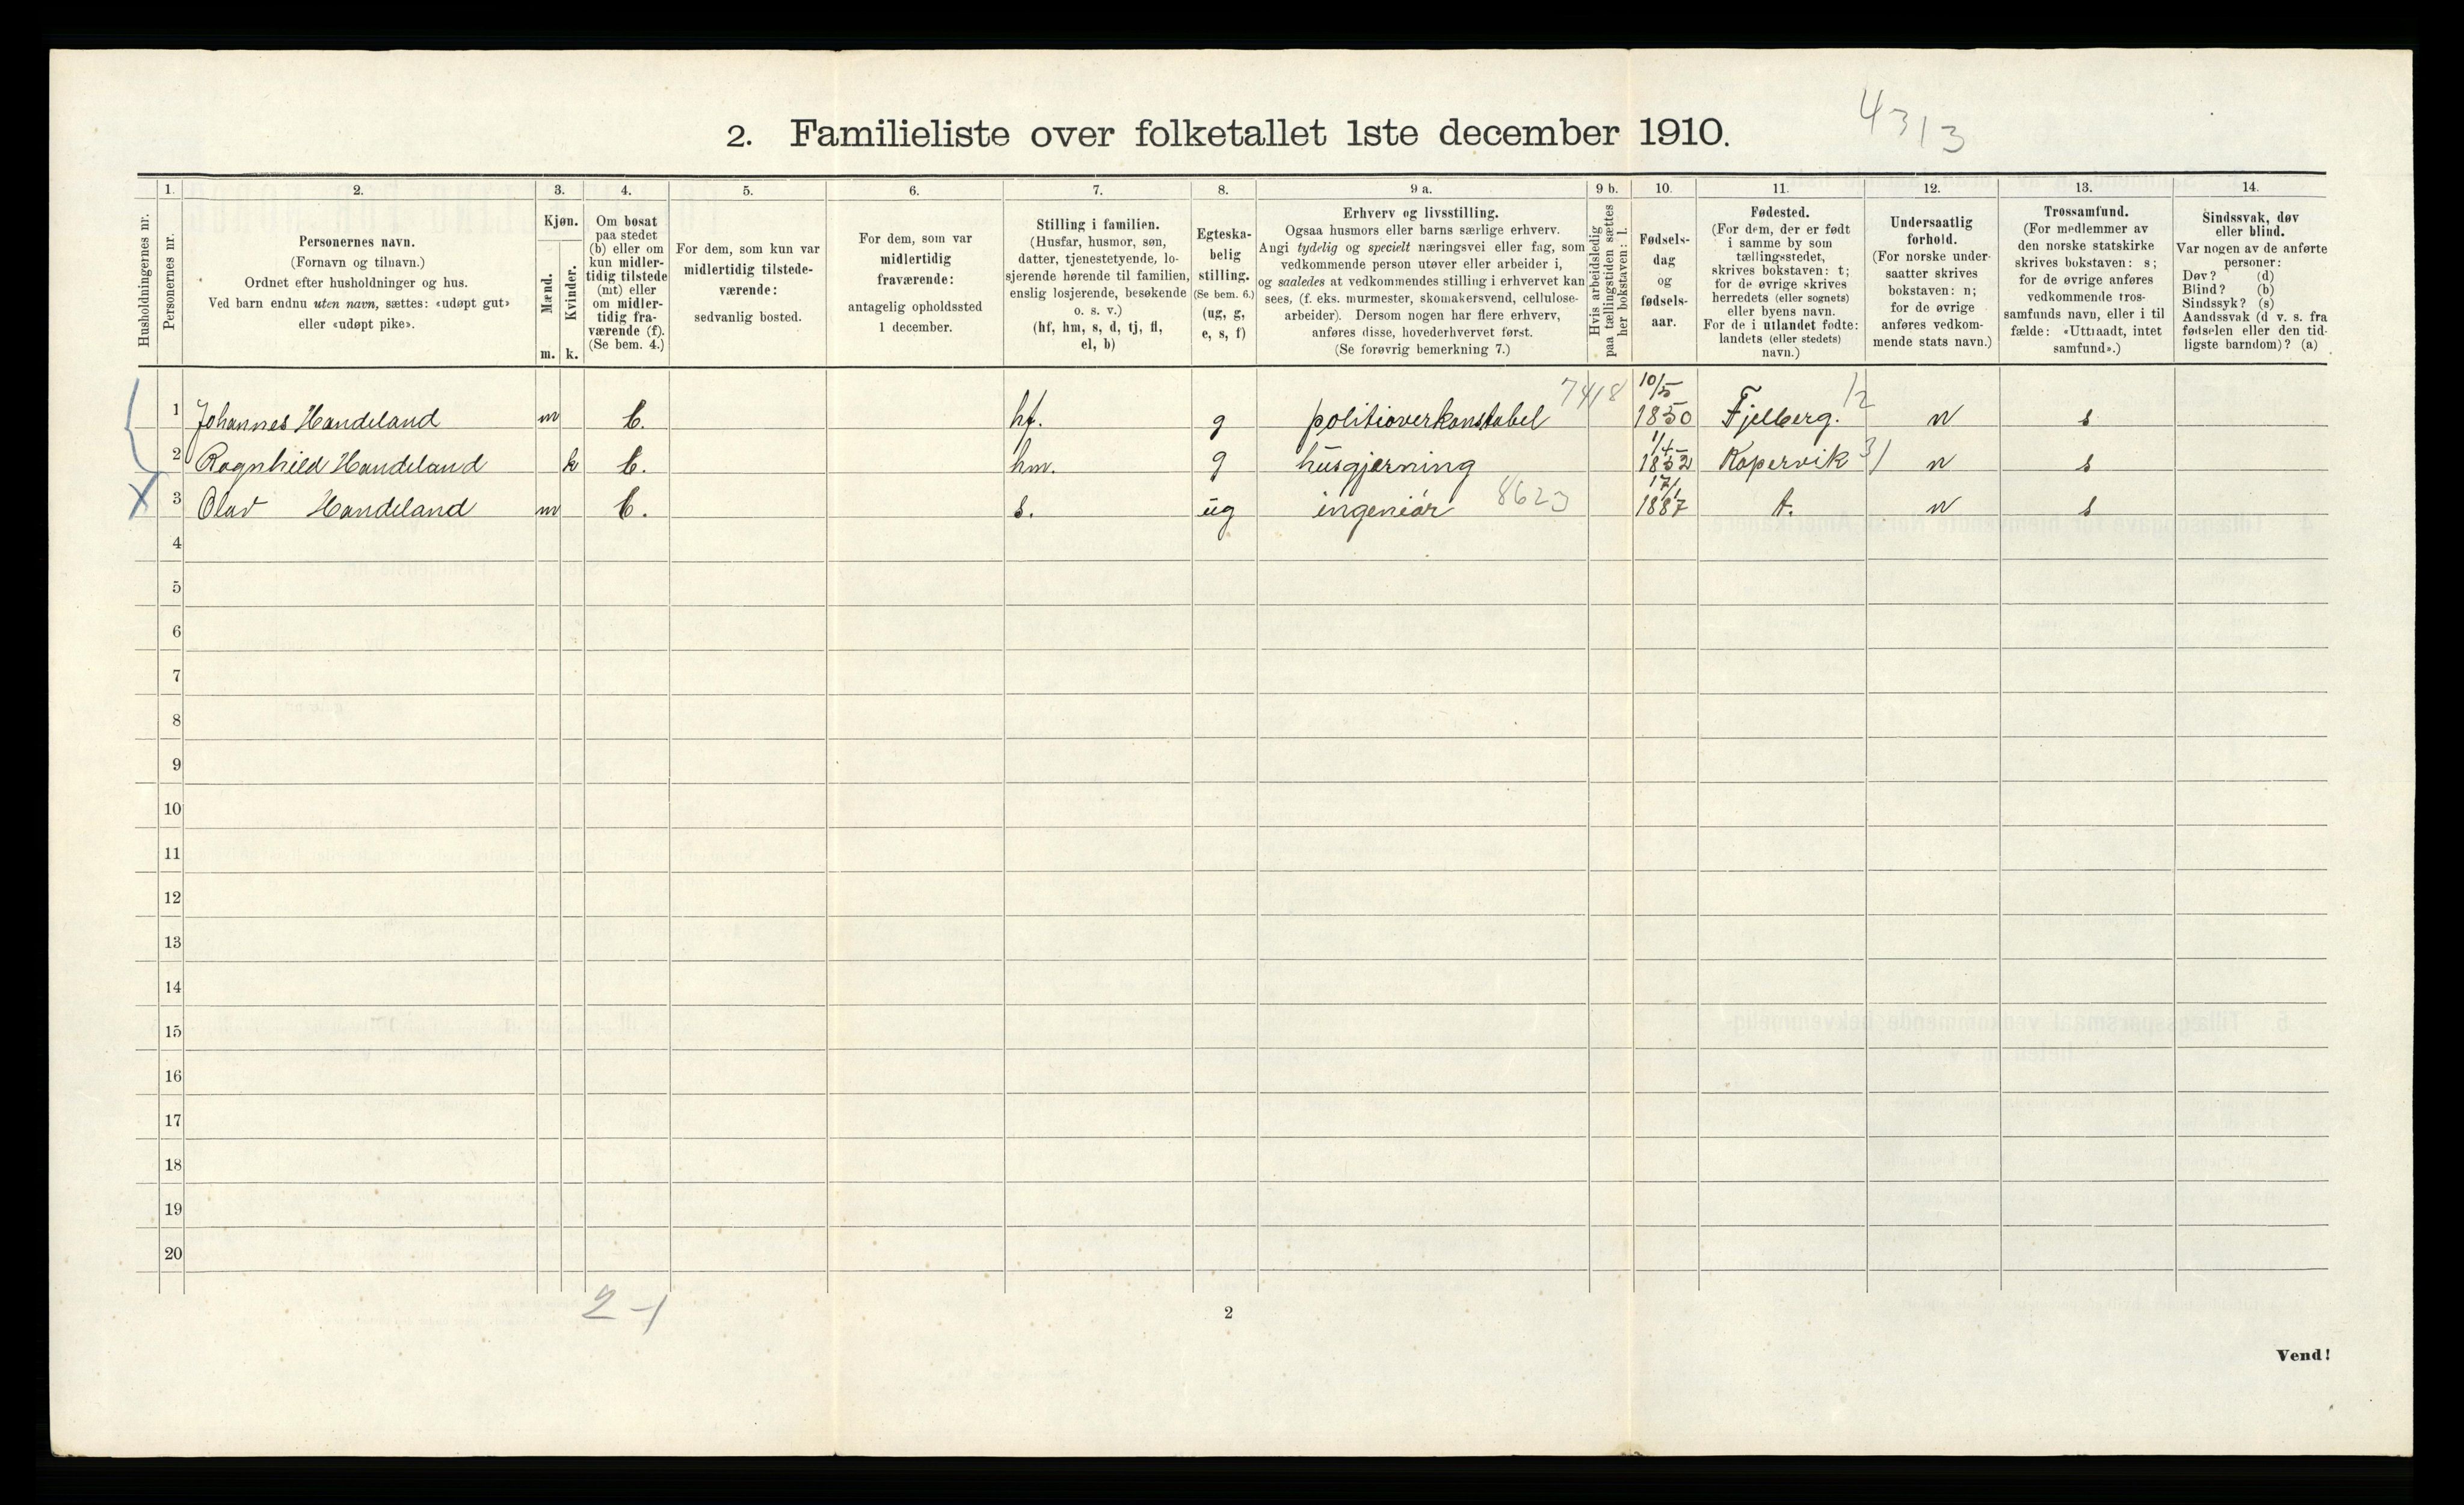 2. Familieliste over folketallet 1ste december 1910.
4313
Husholdningernes nr.
1.
Personernes nr.
2.
Personernes navn.
(Fornavn og tilnavn.)
Ordnet efter husholdninger og hus.
Ved barn endnu uten navn, sættes: «udøpt gut»
eller «udøpt pike».
3.
Kjøn.
Mænd.
m.
Kvinder.
k.
4.
Om bosat
paa stedet
(b) eller om
kun midler-
tidig tilstede
(mt) eller
om midler-
tidig fra-
værende (f).
(Se bem. 4.)
5.
For dem, som kun var
midlertidig tilstede-
værende:
sedvanlig bosted.
6.
For dem, som var
midlertidig
fraværende:
antagelig opholdssted
1 december.
7.
Stilling i familien.
(Husfar, husmor, søn,
datter, tjenestetyende, lo-
sjerende hørende til familien,
enslig losjerende, besøkende
o. s. v.)
(hf, hm, s, d, tj, fl,
el, b)
8.
Egteska-
belig
stilling.
(Se bem. 6.)
(ug, g,
e, s, f)
9 a.
Erhverv og livsstilling.
Ogsaa husmors eller barns særlige erhverv.
Angi tydelig og specielt næringsvei eller fag, som
vedkommende person utøver eller arbeider i,
og saaledes at vedkommendes stilling i erhvervet kan
sees, (f. eks. murmester, skomakersvend, cellulose-
arbeider). Dersom nogen har flere erhverv,
anføres disse, hovederhvervet først.
(Se forøvrig bemerkning 7.)
9 b.
Hvis arbeidsledig
paa tællingstiden sættes
her bokstaven: l.
10.
Fødsels-
dag
og
fødsels-
aar.
11.
Fødested.
(For dem, der er født
i samme by som
tællingsstedet,
skrives bokstaven: t;
for de øvrige skrives
herredets (eller sognets)
eller byens navn.
For de i utlandet fødte:
landets (eller stedets)
navn.)
12.
Undersaatlig
forhold.
(For norske under-
saatter skrives
bokstaven: n;
for de øvrige
anføres vedkom-
mende stats navn.)
13.
Trossamfund.
(For medlemmer av
den norske statskirke
skrives bokstaven: s;
for de øvrige anføres
vedkommende tros-
samfunds navn, eller i til-
fælde: «Uttraadt, intet
samfund».)
14.
Sindssvak, døv
eller blind.
Var nogen av de anførte
personer:
Døv? (d)
Blind? (b)
Sindssyk? (s)
Aandssvak (d v. s. fra
fødselen eller den tid-
ligste barndom)? (a)
1 Johannes Handeland m b. hf. g politioverkonstabel 7418 10/5 1850 Fjelberg. 12 n s
2 Ragnhild Handeland k b. hm. g husgjerning 1/4 1852 Kopervik 31 n s
3 Olav Handeland m b. s. ug ingeniør 8623 17/1 1887 t. n s
4
5
6
7
8
9
10
11
12
13
14
15
16
17
18
19
20
2-1
2
Vend!